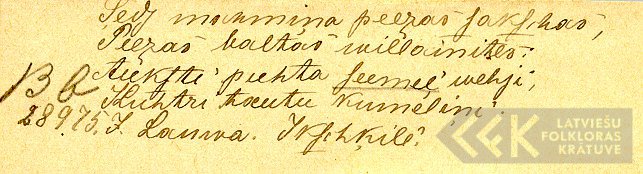 Sedz mahmiņa peezas sakschas,
Peezas baltas willainites:
Auksti puhta seemeļ wehji,
Kuhtri tautu kumeliņi.
Bb
28975. J. Lauwa. Ikschķilē.
LATVIEŠU
FOLKLORAS
KRĀTUVE